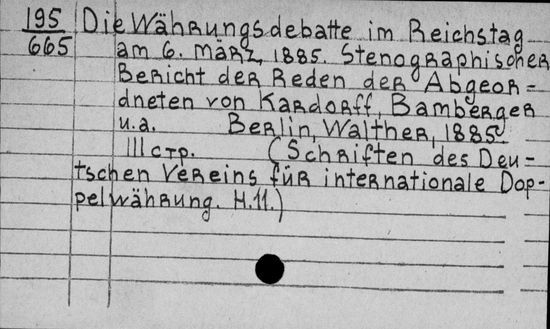 195 Die Währungsdebatte im Reichstag
665 am 6. März, 1885. Stenographischer
Bericht der Reden der Abgeor-
dneten von Kardorff, Bamberger
u.a. Berlin, Walther, 1885.
111 стр. (Schriften des Deu-
tschen Vereins für internationale Dop-
pelwährung. H.11.)